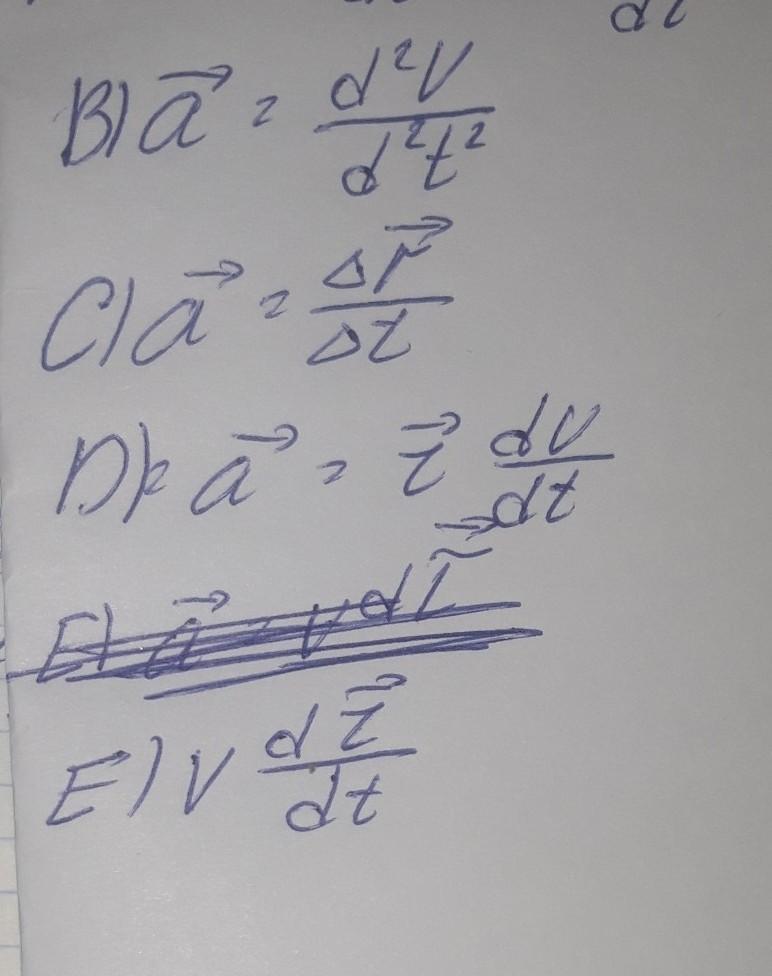 dt
B) a⃗ = d²V / d²t²
C) a⃗ = Δr⃗ / Δt
D) a⃗ = τ⃗ dV / dt
E) a⃗ = V dτ⃗
E) V dτ⃗ / dt